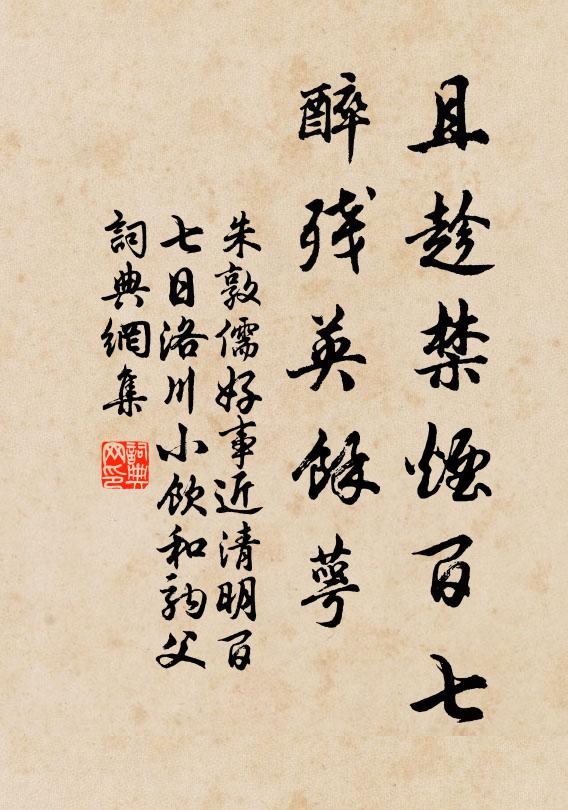 且趁禁煙百七
醉残英餘萼
朱敦儒好事近清明百
七日洛川小飲和駒父
詞典網集
詞典网印